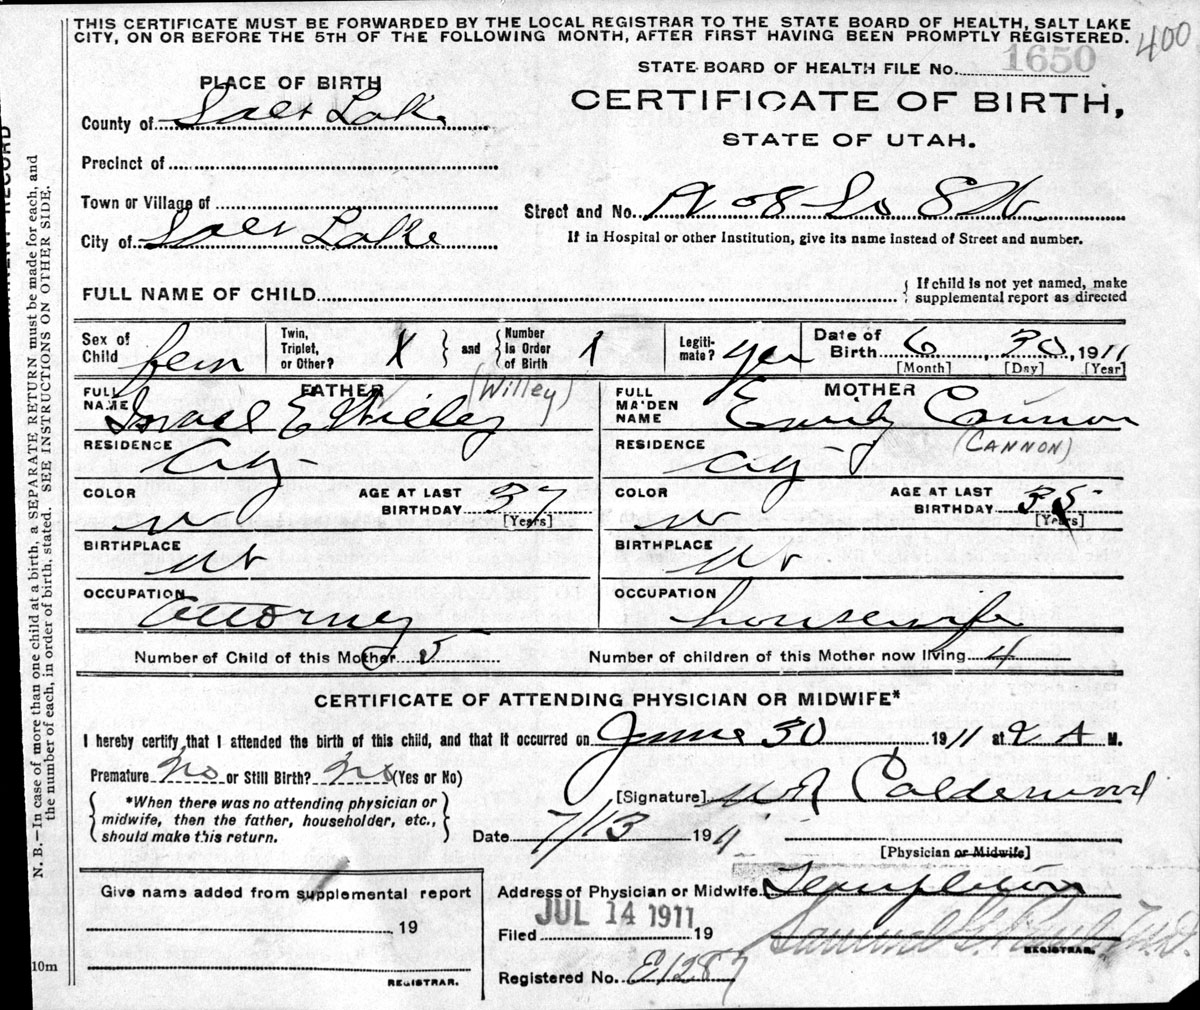 THIS CERTIFICATE MUST BE FORWARDED BY THE LOCAL REGISTRAR TO THE STATE BOARD OF HEALTH, SALT LAKE
CITY, ON OR BEFORE THE 5TH OF THE FOLLOWING MONTH, AFTER FIRST HAVING BEEN PROMPTLY REGISTERED.
400
STATE BOARD OF HEALTH FILE No. 1650
PLACE OF BIRTH
CERTIFICATE OF BIRTH,
STATE OF UTAH.
County of Salt Lake
Precinct of
Town or Village of
City of Salt Lake
Street and No.
If in Hospital or other Institution, give its name instead of Street and number.
FULL NAME OF CHILD
If child is not yet named, make
supplemental report as directed
Sex of Child fem
Twin, Triplet, or Other? X and Number in Order of Birth 1
Legitimate? yes
Date of Birth 6, 30, 1911
[Month] [Day] [Year]
FATHER
FULL NAME Israel E Willey (Willey)
MOTHER
FULL MAIDEN NAME Emily Cannon
(CANNON)
RESIDENCE City
RESIDENCE City
COLOR W AGE AT LAST BIRTHDAY 37 [Years]
COLOR W AGE AT LAST BIRTHDAY 35 [Years]
BIRTHPLACE Ut
BIRTHPLACE Ut
OCCUPATION Attorney
OCCUPATION housewife
Number of Child of this Mother 5
Number of children of this Mother now living 4
CERTIFICATE OF ATTENDING PHYSICIAN OR MIDWIFE*
I hereby certify that I attended the birth of this child, and that it occurred on June 30 1911 at 2 A M.
Premature No or Still Birth? No (Yes or No)
*When there was no attending physician or
midwife, then the father, householder, etc.,
should make this return.
[Signature] W R Calderwood
Date 7/13 1911
[Physician or Midwife]
Give name added from supplemental report
19
REGISTRAR.
Address of Physician or Midwife Templeton
JUL 14 1911
Filed 19
REGISTRAR.
Registered No. E1287
10m
N. B.—In case of more than one child at a birth, a SEPARATE RETURN must be made for each, and
the number of each, in order of birth, stated. SEE INSTRUCTIONS ON OTHER SIDE.